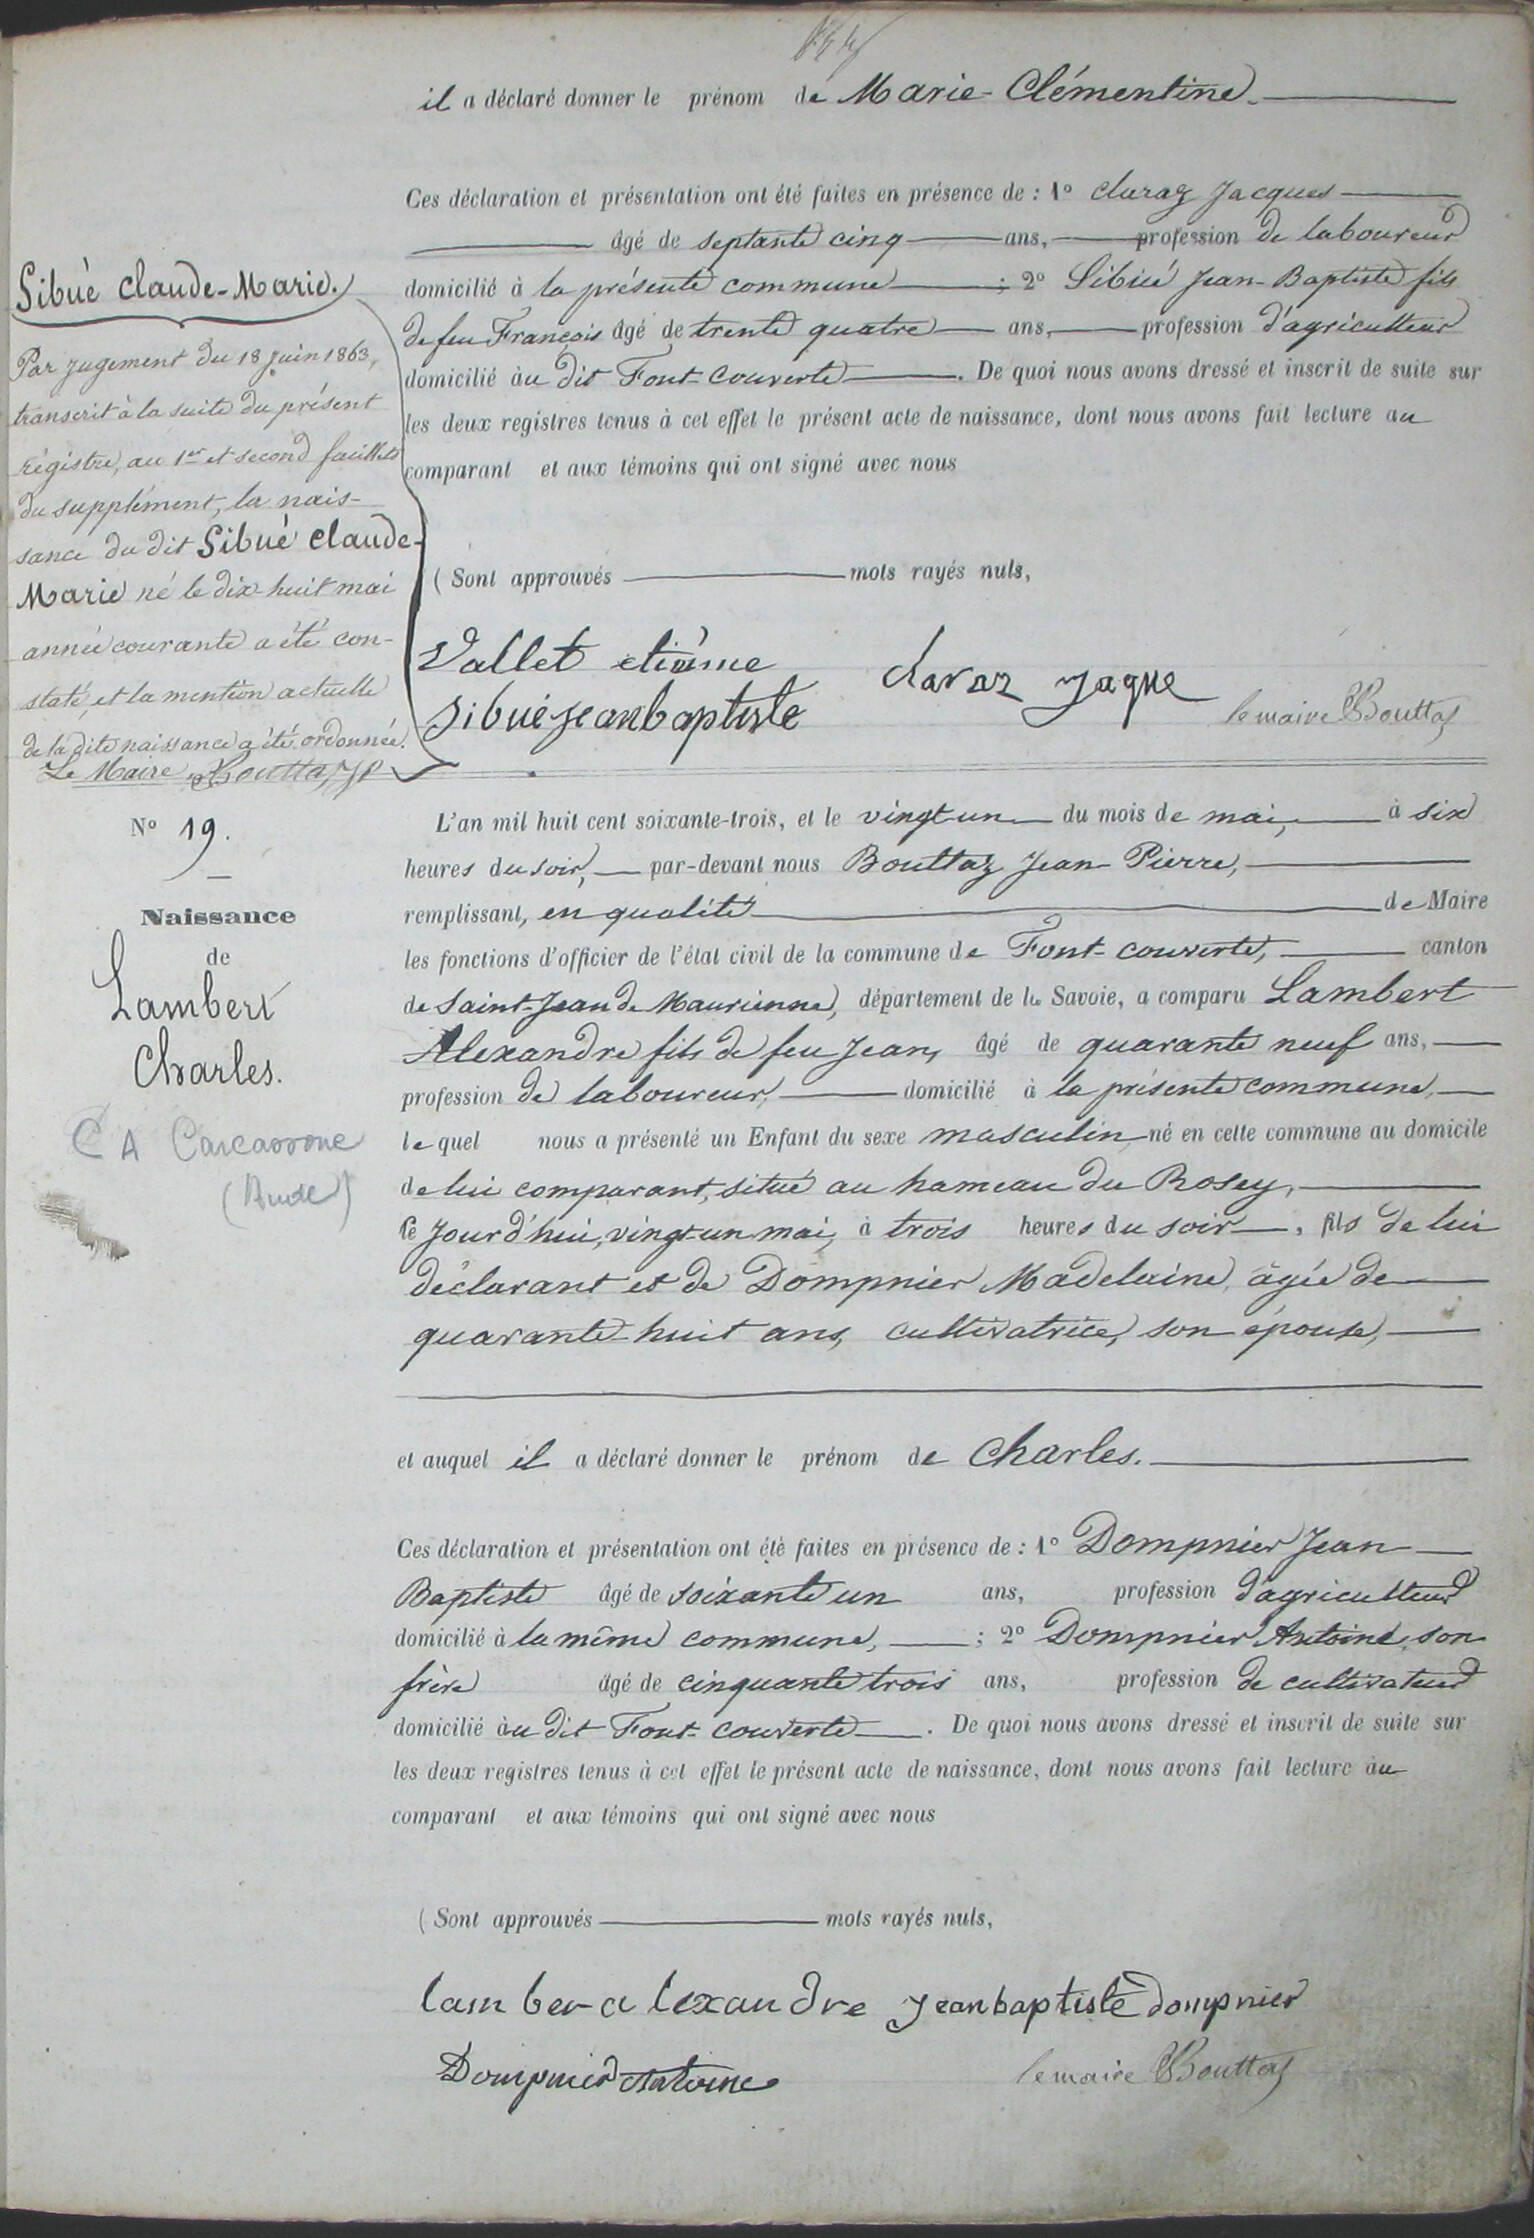 il a déclaré donner le prénom de Marie-Clémentine.
Ces déclaration et présentation ont été faites en présence de : 1° Claraz Jacques
âgé de septante cinq ans, profession de laboureur
domicilié à la présente commune ; 2° Sibué Jean-Baptiste fils
de feu François âgé de trente quatre ans, profession d'agriculteur
domicilié àu dit Font-couverte. De quoi nous avons dressé et inscrit de suite sur
les deux registres tenus à cet effet le présent acte de naissance, dont nous avons fait lecture au
comparant et aux témoins qui ont signé avec nous
(Sont approuvés mots rayés nuls,
Vallet etiènne
Claraz Jaque
Sibué jeanbaptiste
le maire Bouttaz
Sibué Claude-Marie.
Par jugement du 18 juin 1863,
transcrit à la suite du présent
régistre, au 1er et second feuillets
du supplément, la nais-
sance du dit Sibué Claude-
Marie né le dix-huit mai
année courante a été con-
staté, et la mention actuelle
de la dite naissance a été ordonnée.
Le Maire, Bouttaz JP
N° 19.
Naissance
de
Lambert
Charles.
C A Carcassone
(Aude)
L'an mil huit cent soixante-trois, et le vingt-un du mois de mai, à six
heures du soir, par-devant nous Bouttaz Jean-Pierre,
remplissant, en qualité de Maire
les fonctions d'officier de l'état civil de la commune de Font-couverte, canton
de Saint-Jean de Maurienne, département de la Savoie, a comparu Lambert
Alexandre fils de feu Jean, âgé de quarante neuf ans,
profession de laboureur, domicilié à la présente commune,
lequel nous a présenté un Enfant du sexe masculin né en cette commune au domicile
de lui comparant, situé au hameau du Rosey,
ce jourd'hui, vingt-un mai, à trois heures du soir, fils de lui
déclarant et de Dompnier Madelaine, âgée de
quarante-huit ans, cultivatrice, son épouse,
et auquel il a déclaré donner le prénom de Charles.
Ces déclaration et présentation ont été faites en présence de : 1° Dompnier Jean
Baptiste âgé de soixante un ans, profession d'agriculteur
domicilié à la même commune, ; 2° Dompnier Antoine, son
frère âgé de cinquante trois ans, profession de cultivateur
domicilié àu dit Font-couverte. De quoi nous avons dressé et inscrit de suite sur
les deux registres tenus à cet effet le présent acte de naissance, dont nous avons fait lecture àu
comparant et aux témoins qui ont signé avec nous
(Sont approuvés mots rayés nuls,
lamber alexandre jeanbaptiste dompnier
Dompnier antoine
le maire Bouttaz